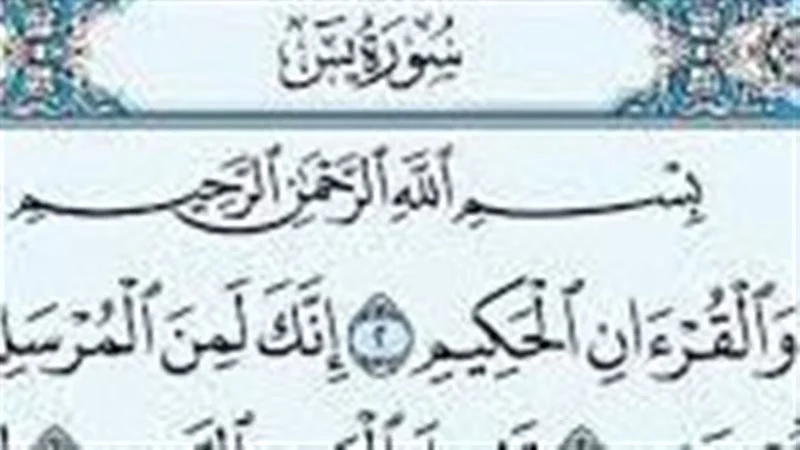 سُورَةُ يسٓ
بِسْمِ ٱللَّهِ ٱلرَّحْمَٰنِ ٱلرَّحِيمِ
وَٱلْقُرْءَانِ ٱلْحَكِيمِ ٢ إِنَّكَ لَمِنَ ٱلْمُرْسَلِ